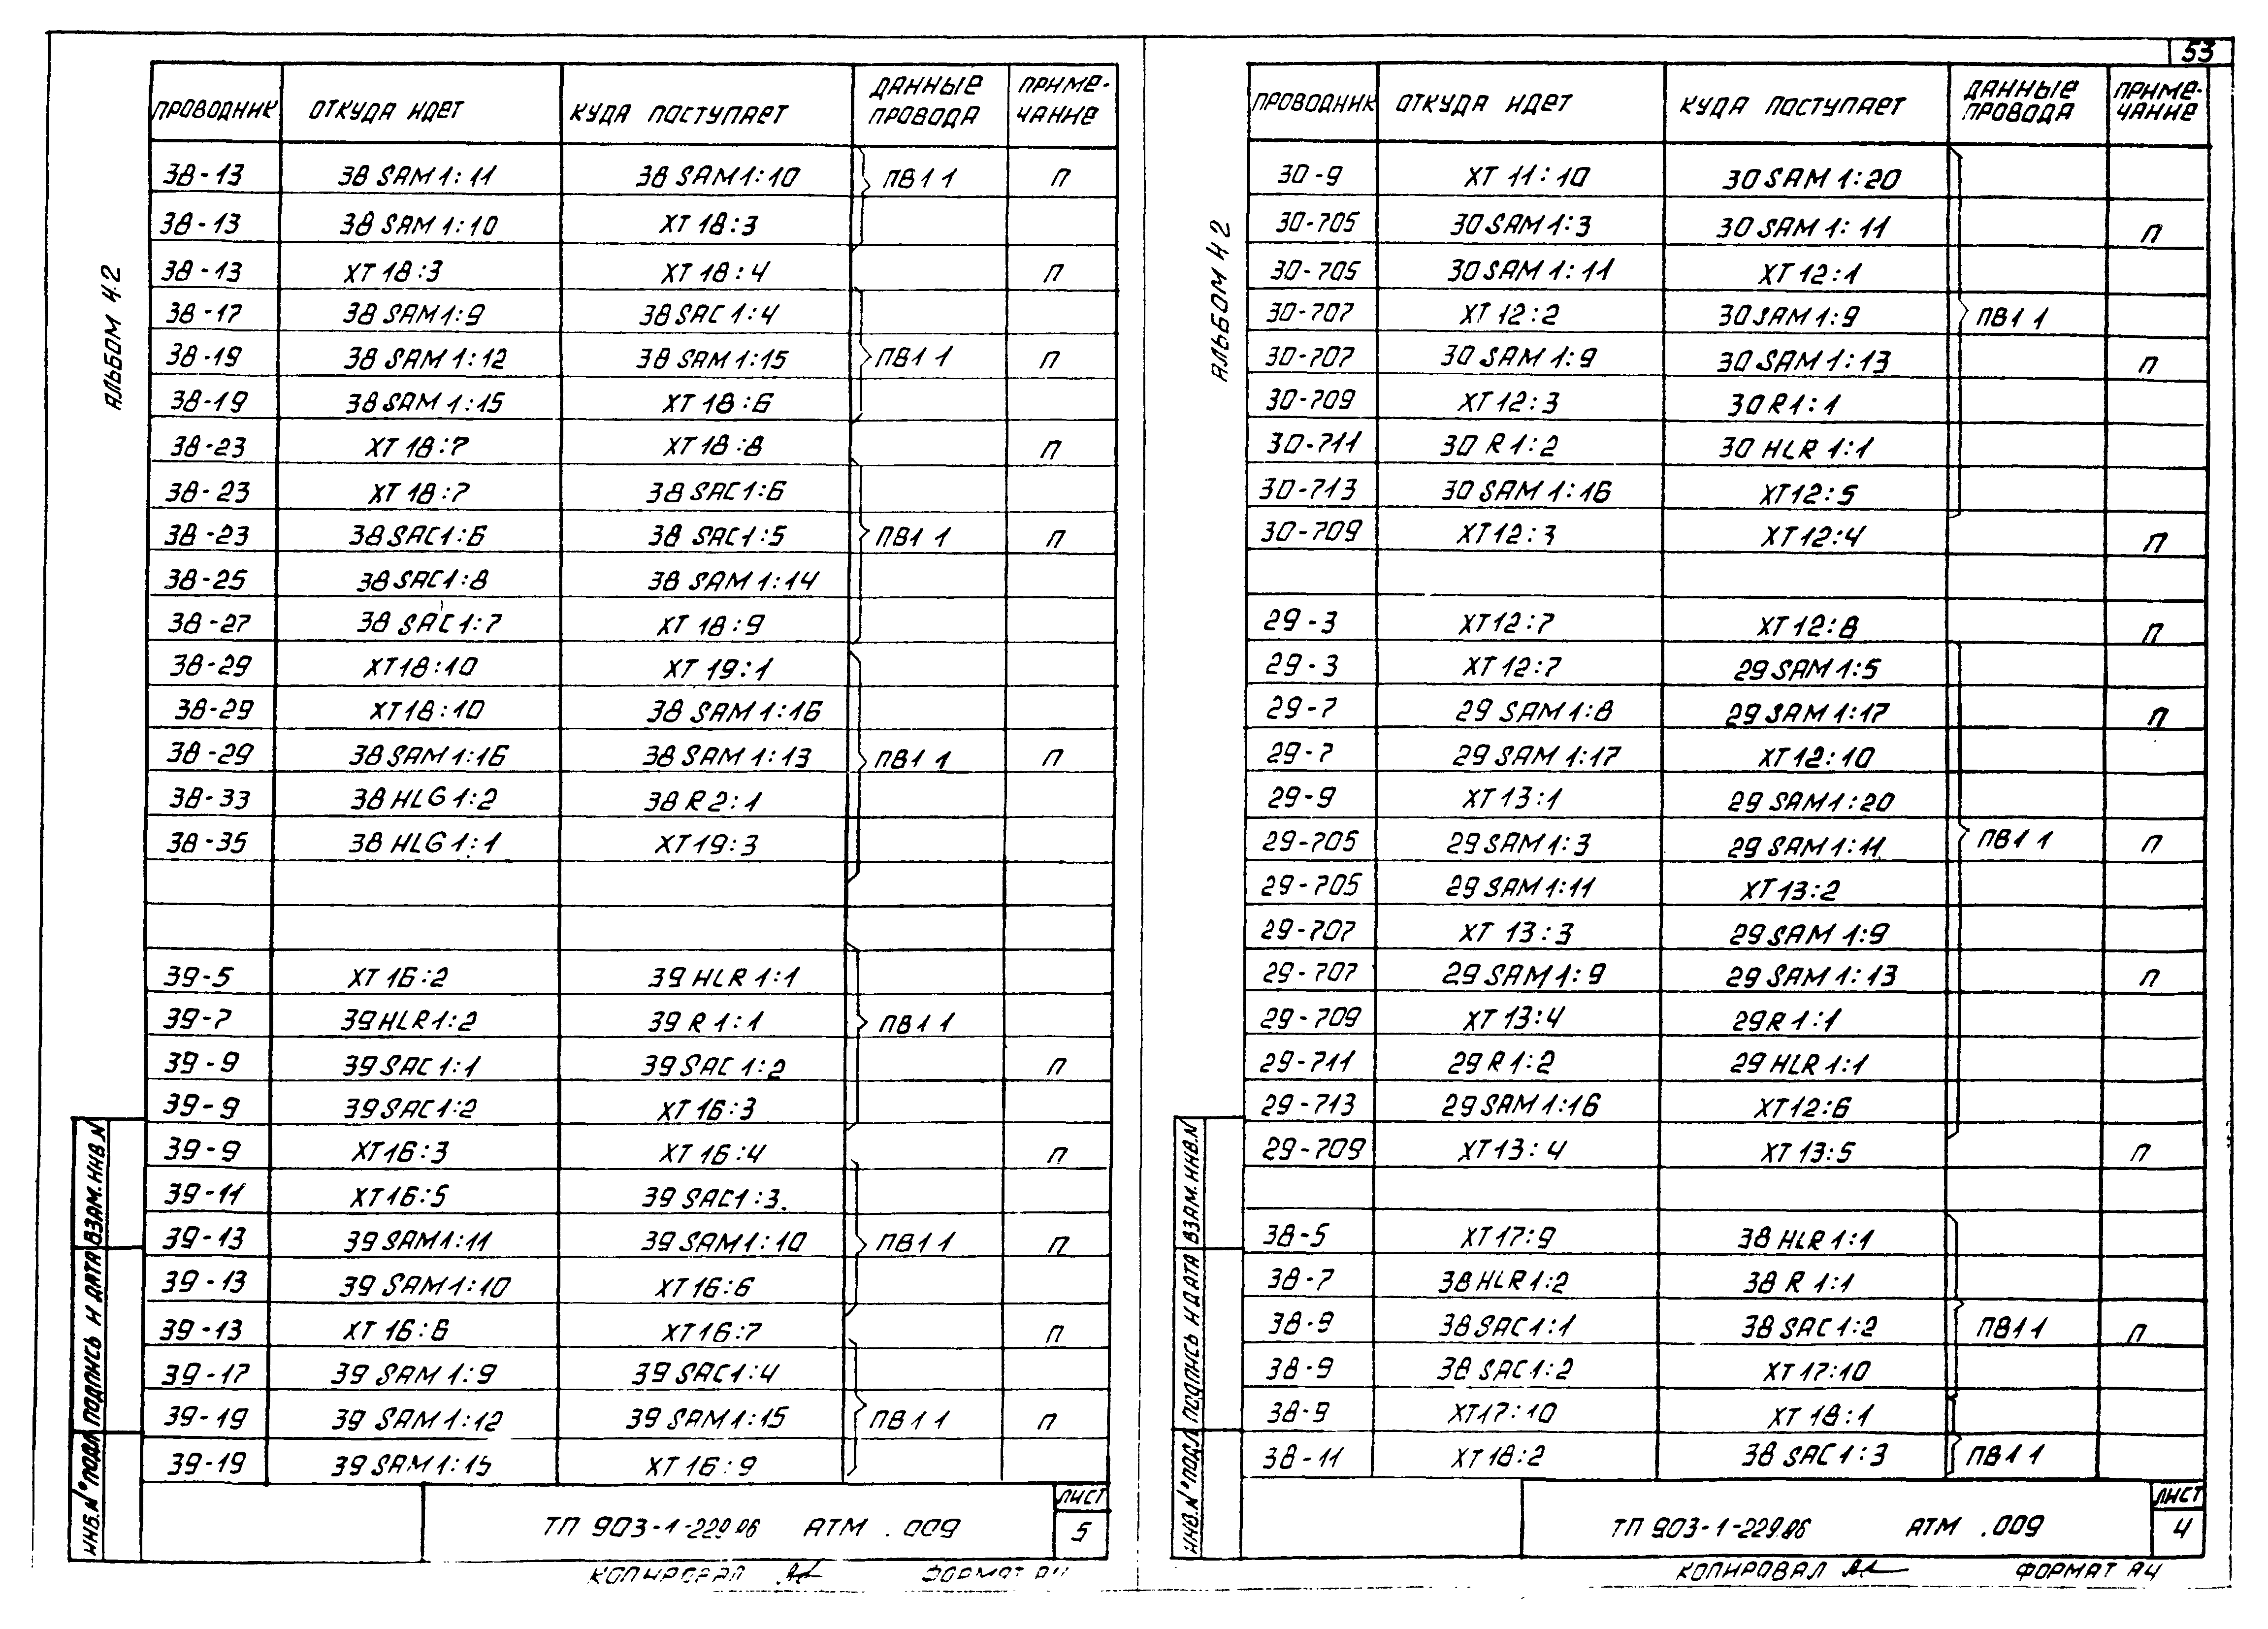 53
АЛЬБОМ 4.2
ПРОВОДНИК ОТКУДА ИДЕТ КУДА ПОСТУПАЕТ ДАННЫЕ ПРОВОДА ПРИМЕ-ЧАНИЕ
38-13 38 SAM 1:11 38 SAM 1:10 ПВ1 1 П
38-13 38 SAM 1:10 XT 18:3
38-13 XT 18:3 XT 18:4 П
38-17 38 SAM 1:9 38 SAC 1:4
38-19 38 SAM 1:12 38 SAM 1:15 ПВ1 1 П
38-19 38 SAM 1:15 XT 18:6
38-23 XT 18:7 XT 18:8 П
38-23 XT 18:7 38 SAC 1:6
38-23 38 SAC 1:6 38 SAC 1:5 ПВ1 1 П
38-25 38 SAC 1:8 38 SAM 1:14
38-27 38 SAC 1:7 XT 18:9
38-29 XT 18:10 XT 19:1
38-29 XT 18:10 38 SAM 1:16
38-29 38 SAM 1:16 38 SAM 1:13 ПВ1 1 П
38-33 38 HLG 1:2 38 R 2:1
38-35 38 HLG 1:1 XT 19:3
39-5 XT 16:2 39 HLR 1:1
39-7 39 HLR 1:2 39 R 1:1 ПВ1 1
39-9 39 SAC 1:1 39 SAC 1:2 П
39-9 39 SAC 1:2 XT 16:3
39-9 XT 16:3 XT 16:4 П
39-11 XT 16:5 39 SAC 1:3.
39-13 39 SAM 1:11 39 SAM 1:10 ПВ1 1 П
39-13 39 SAM 1:10 XT 16:6
39-13 XT 16:6 XT 16:7 П
39-17 39 SAM 1:9 39 SAC 1:4
39-19 39 SAM 1:12 39 SAM 1:15 ПВ1 1 П
39-19 39 SAM 1:15 XT 16:9
ИНВ. N° ПОДЛ ПОДПИСЬ И ДАТА ВЗАМ. ИНВ. N
ТП 903-1-229.86 АТМ .009
ЛИСТ
5
КОПИРОВАЛ ФОРМАТ А4
АЛЬБОМ 4 2
ПРОВОДНИК ОТКУДА ИДЕТ КУДА ПОСТУПАЕТ ДАННЫЕ ПРОВОДА ПРИМЕ-ЧАНИЕ
30-9 XT 11:10 30 SAM 1:20
30-705 30 SAM 1:3 30 SAM 1:11 П
30-705 30 SAM 1:11 XT 12:1
30-707 XT 12:2 30 SAM 1:9 ПВ1 1
30-707 30 SAM 1:9 30 SAM 1:13 П
30-709 XT 12:3 30 R 1:1
30-711 30 R 1:2 30 HLR 1:1
30-713 30 SAM 1:16 XT 12:5
30-709 XT 12:3 XT 12:4 П
29-3 XT 12:7 XT 12:8 П
29-3 XT 12:7 29 SAM 1:5
29-7 29 SAM 1:8 29 SAM 1:17 П
29-7 29 SAM 1:17 XT 12:10
29-9 XT 13:1 29 SAM 1:20
29-705 29 SAM 1:3 29 SAM 1:11 ПВ1 1 П
29-705 29 SAM 1:11 XT 13:2
29-707 XT 13:3 29 SAM 1:9
29-707 29 SAM 1:9 29 SAM 1:13 П
29-709 XT 13:4 29 R 1:1
29-711 29 R 1:2 29 HLR 1:1
29-713 29 SAM 1:16 XT 12:6
29-709 XT 13:4 XT 13:5 П
38-5 XT 17:9 38 HLR 1:1
38-7 38 HLR 1:2 38 R 1:1
38-9 38 SAC 1:1 38 SAC 1:2 ПВ1 1 П
38-9 38 SAC 1:2 XT 17:10
38-9 XT 17:10 XT 18:1
38-11 XT 18:2 38 SAC 1:3 ПВ1 1
ИНВ. N° ПОДЛ ПОДПИСЬ И ДАТА ВЗАМ. ИНВ. N
ТП 903-1-229.86 АТМ .009
ЛИСТ
4
КОПИРОВАЛ ФОРМАТ А4